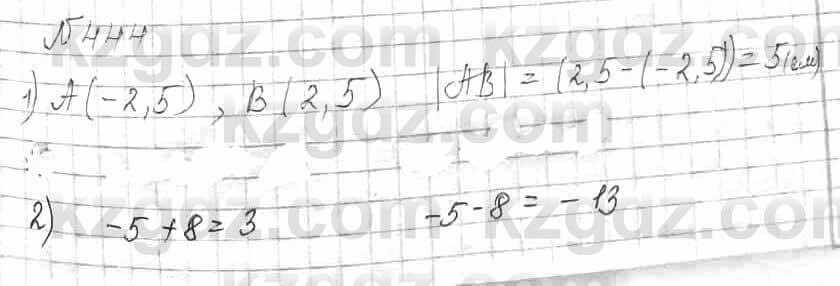 №444
1) A(-2,5), B(2,5) |AB| = (2,5-(-2,5))=5(см)
2) -5+8=3 -5-8=-13
kzgdz.com kzgdz.com
kzgdz.com kzgdz.com
kzgdz.com kzgdz.com